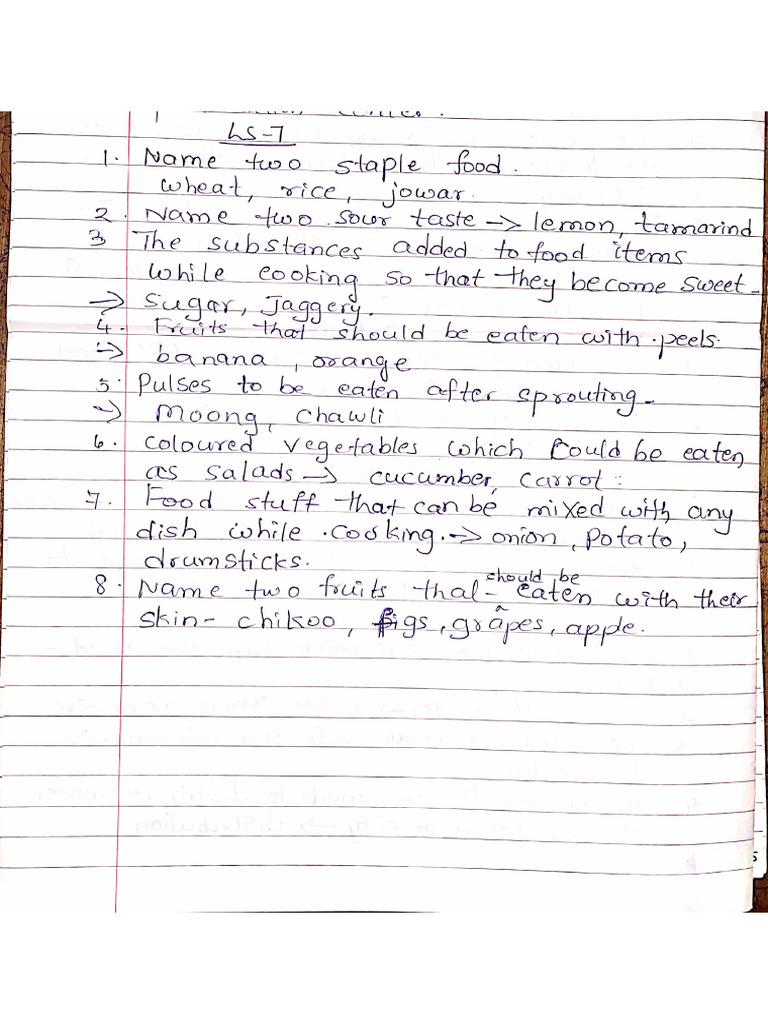 LS-7
1. Name two staple food.
wheat, rice, jowar.
2. Name two sour taste → lemon, tamarind
3 The substances added to food items
while cooking so that they become sweet-
→ sugar, Jaggery.
4. Fruits that should be eaten with peels.
→ banana, orange
5. Pulses to be eaten after sprouting-
→ Moong, chawli
6. Coloured vegetables which could be eaten
as salads → cucumber, carrot:
7. Food stuff that can be mixed with any
dish while cooking. → onion, potato,
drumsticks.
8. Name two fruits that- should be eaten with their
skin- chikoo, figs, grapes, apple.